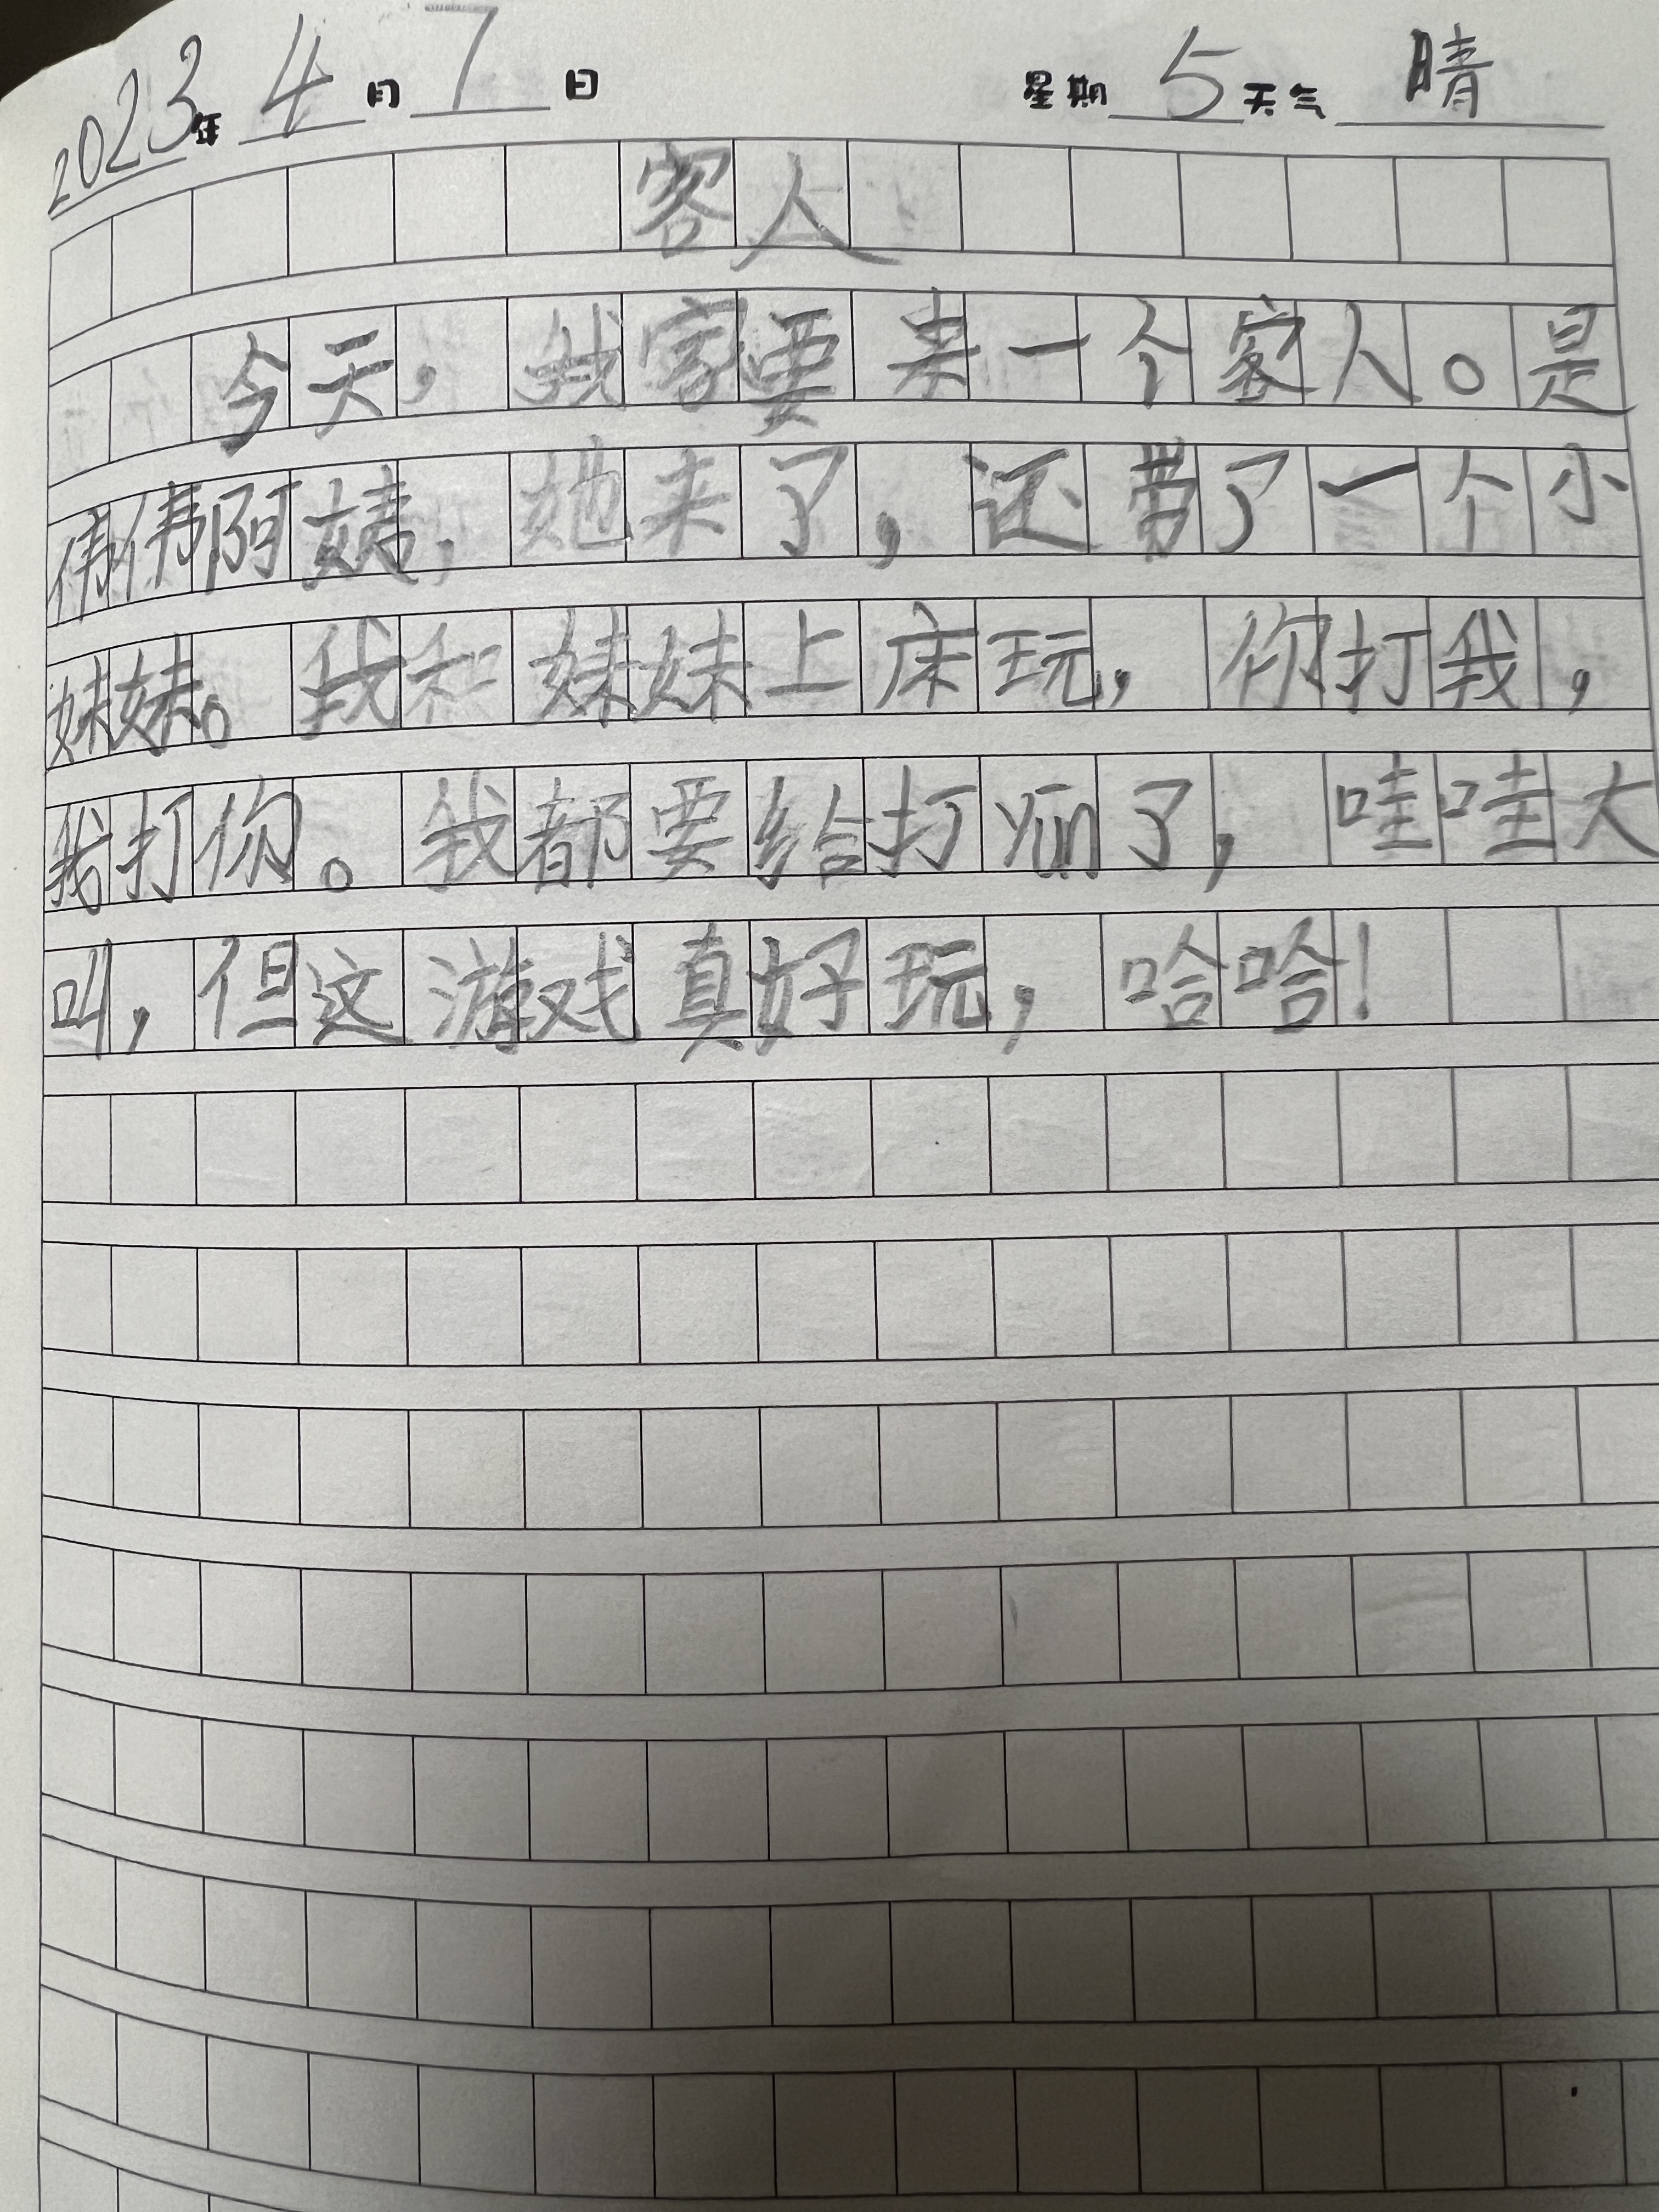 2023年 4 月 7 日 星期 5 天气 晴
客人
今天，我家要来一个客人。是
伟伟阿姨，她来了，还带了一个小
妹妹。我和妹妹上床玩，你打我，
我打你。我都要给打yūn了，哇哇大
叫，但这游戏真好玩，哈哈！